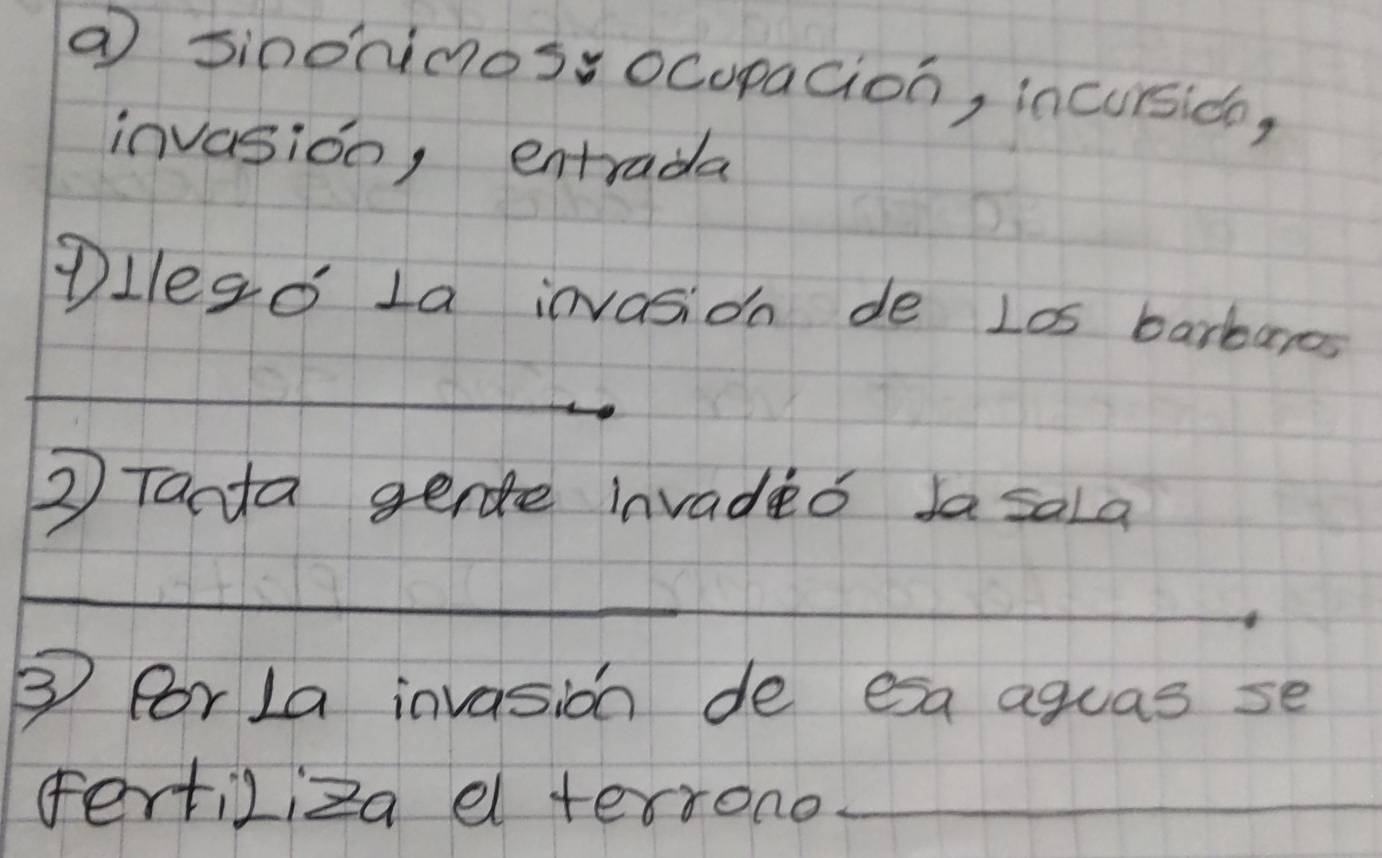 a) sinónimos: ocupación, incursión,
invasión, entrada
1) llegó la invasión de los barbaros
2) Tanta gente invadió la sala
3) Por la invasión de esa aguas se
fertiliza el terrono